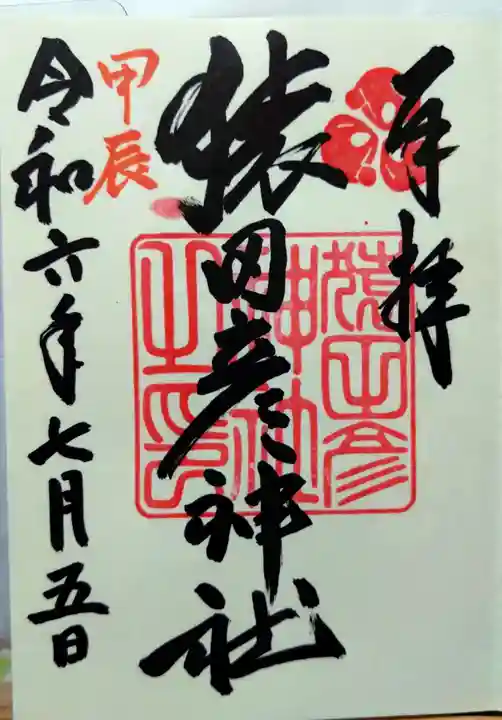 奉拝
猿田彦神社
猿田彦
神社
之印
甲辰
令和六年七月五日